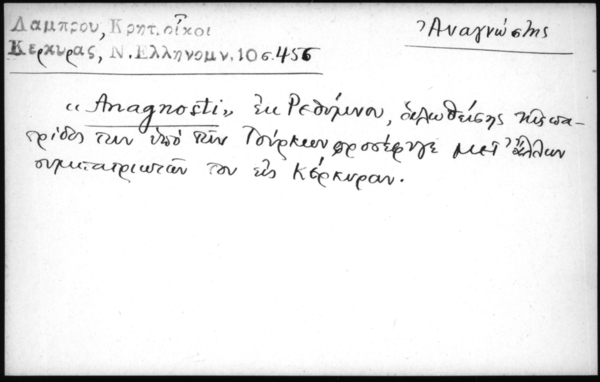 Λαμπρου, Κρητ. οἶκοι
Κερκυρας, Ν. Ελληνομν. 10 σ. 456
Ἀναγνώστης
«Anagnosti» ἐκ Ρεθύμνου, ἁλωθείσης τῆς πα-
τρίδος των ὑπό τῶν Τούρκων προσέφυγε μετ' ἄλλων
συμπατριωτῶν του εἰς Κέρκυραν.